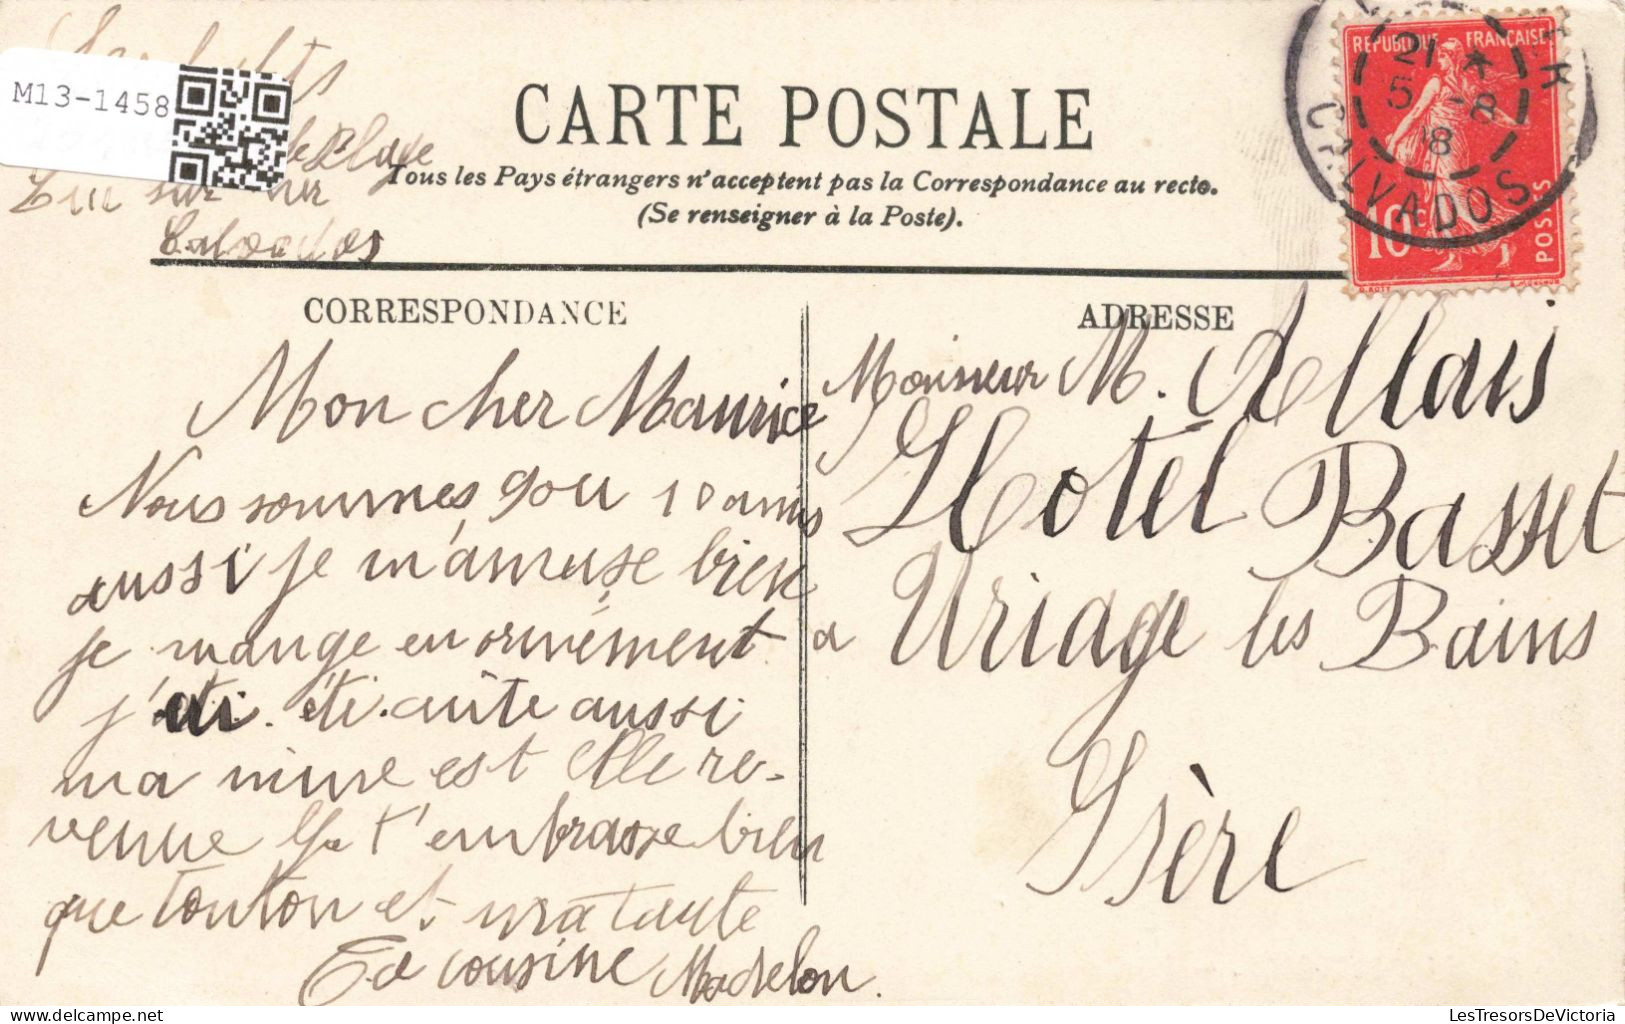 M13-1458
CARTE POSTALE
Tous les Pays étrangers n'acceptent pas la Correspondance au recto.
(Se renseigner à la Poste).
Luc sur mer
Calvados
REPUBLIQUE FRANÇAISE
21 *
5 -8
08
CALVADOS
10 c
POSTES
O. ROTY
CORRESPONDANCE
Mon cher Maurice
Nous sommes 9 ou 10 amis
aussi je m'amuse bien
je mange enormément
j'ai été cuite aussi
ma mine est elle re-
venue Je t'embrasse bien
que Tonton et ma tante
Ta cousine Madelon.
ADRESSE
Monsieur M. Allais
Hotel Basset
a Uriage les Bains
Isère
delcampe.net
LesTresorsDeVictoria